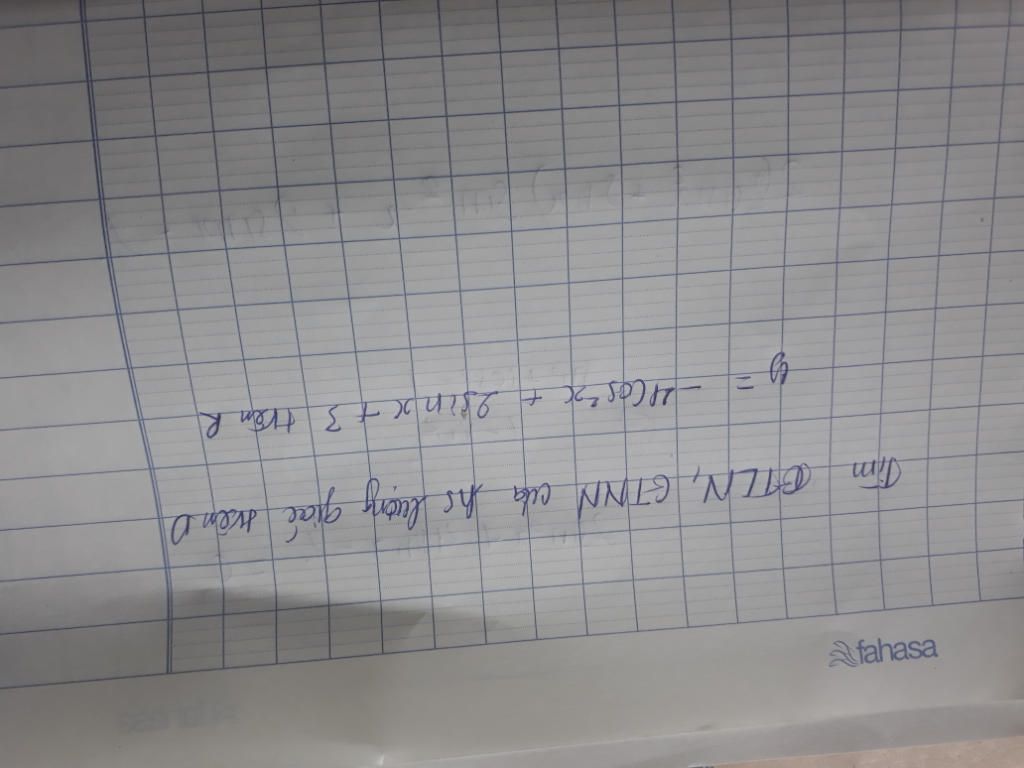 Tìm GTLN, GTNN của hs lượng giác trên D
y = -4cos²x + 2sinx + 3 trên R
fahasa